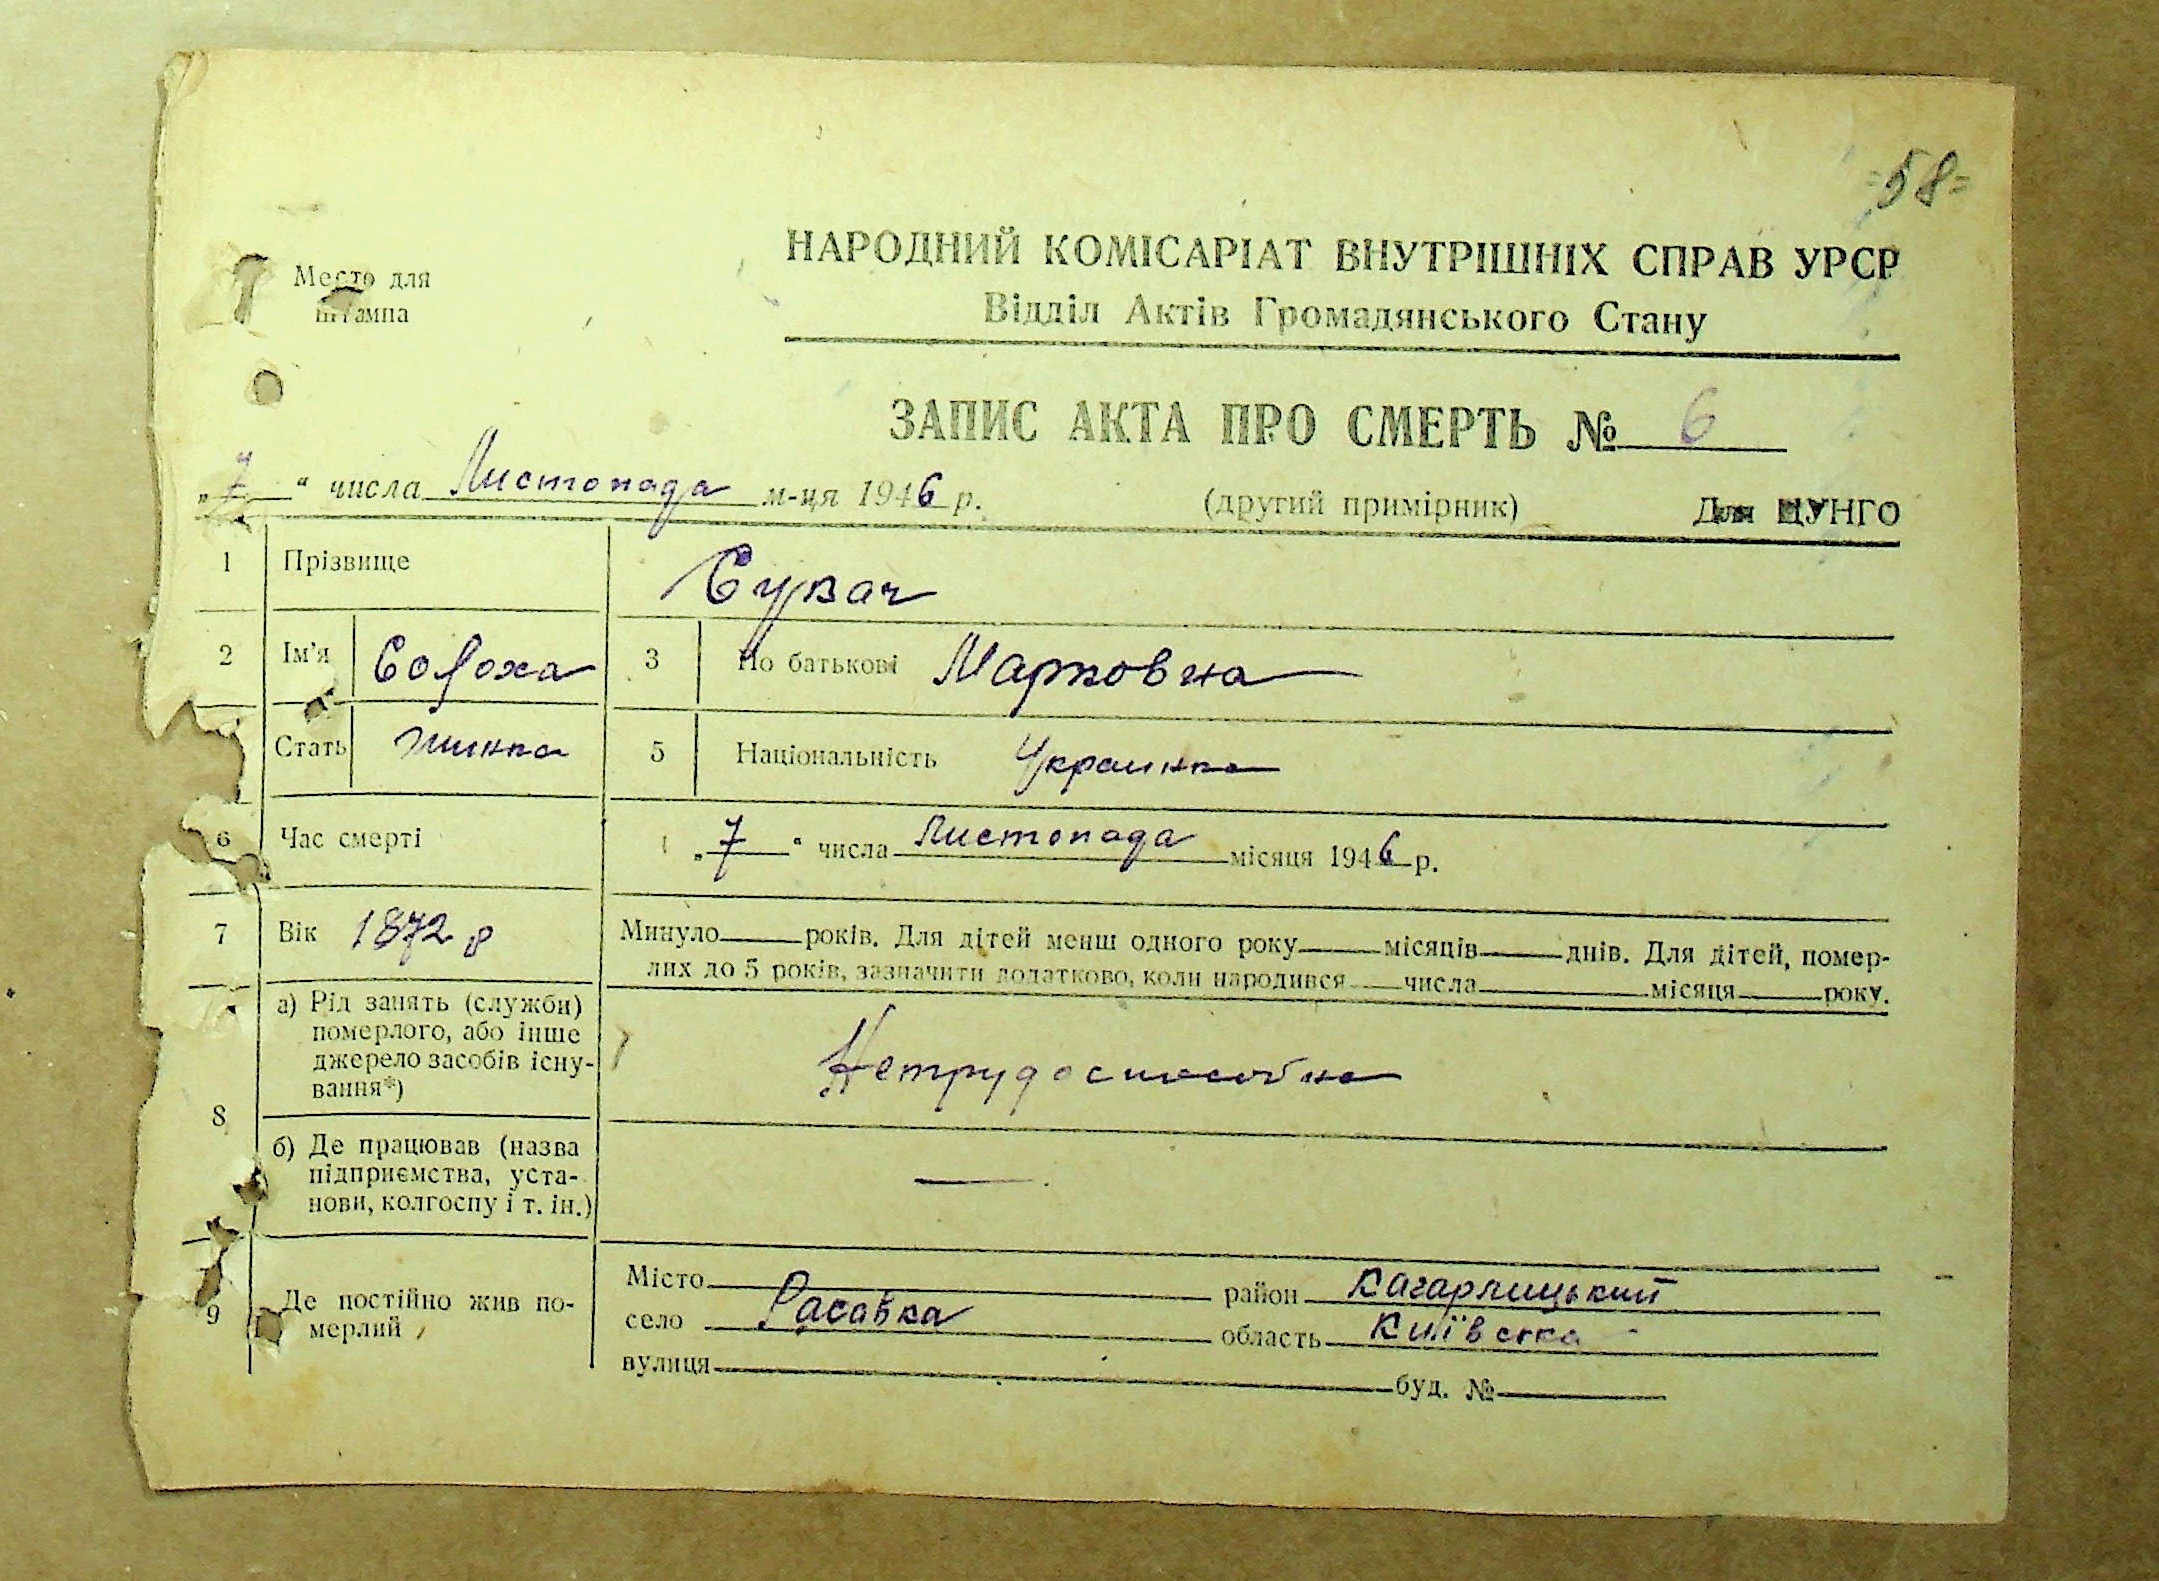 =58=
Место для
штампа
НАРОДНИЙ КОМІСАРІАТ ВНУТРІШНІХ СПРАВ УРСР
Відділ Актів Громадянського Стану
ЗАПИС АКТА ПРО СМЕРТЬ № 6
„7“ числа Листопада м-ця 1946 р. (другий примірник) Для ЦУНГО
1 Прізвище Сувач
2 Ім'я Солоха 3 По батькові Марковна
Стать жинка 5 Національність Украинка
6 Час смерті „7“ числа Листопада місяця 1946 р.
7 Вік 1872 р Минуло років. Для дітей менш одного року місяців днів. Для дітей, помер-
лих до 5 років, зазначити додатково, коли народився числа місяця року.
8 а) Рід занять (служби)
померлого, або інше
джерело засобів існу-
вання*) Нетрудоспособна
б) Де працював (назва
підприємства, уста-
нови, колгоспу і т. ін.) —
9 Де постійно жив по-
мерлий
Місто район Кагарлицький
село Расавка область Київська
вулиця буд. №